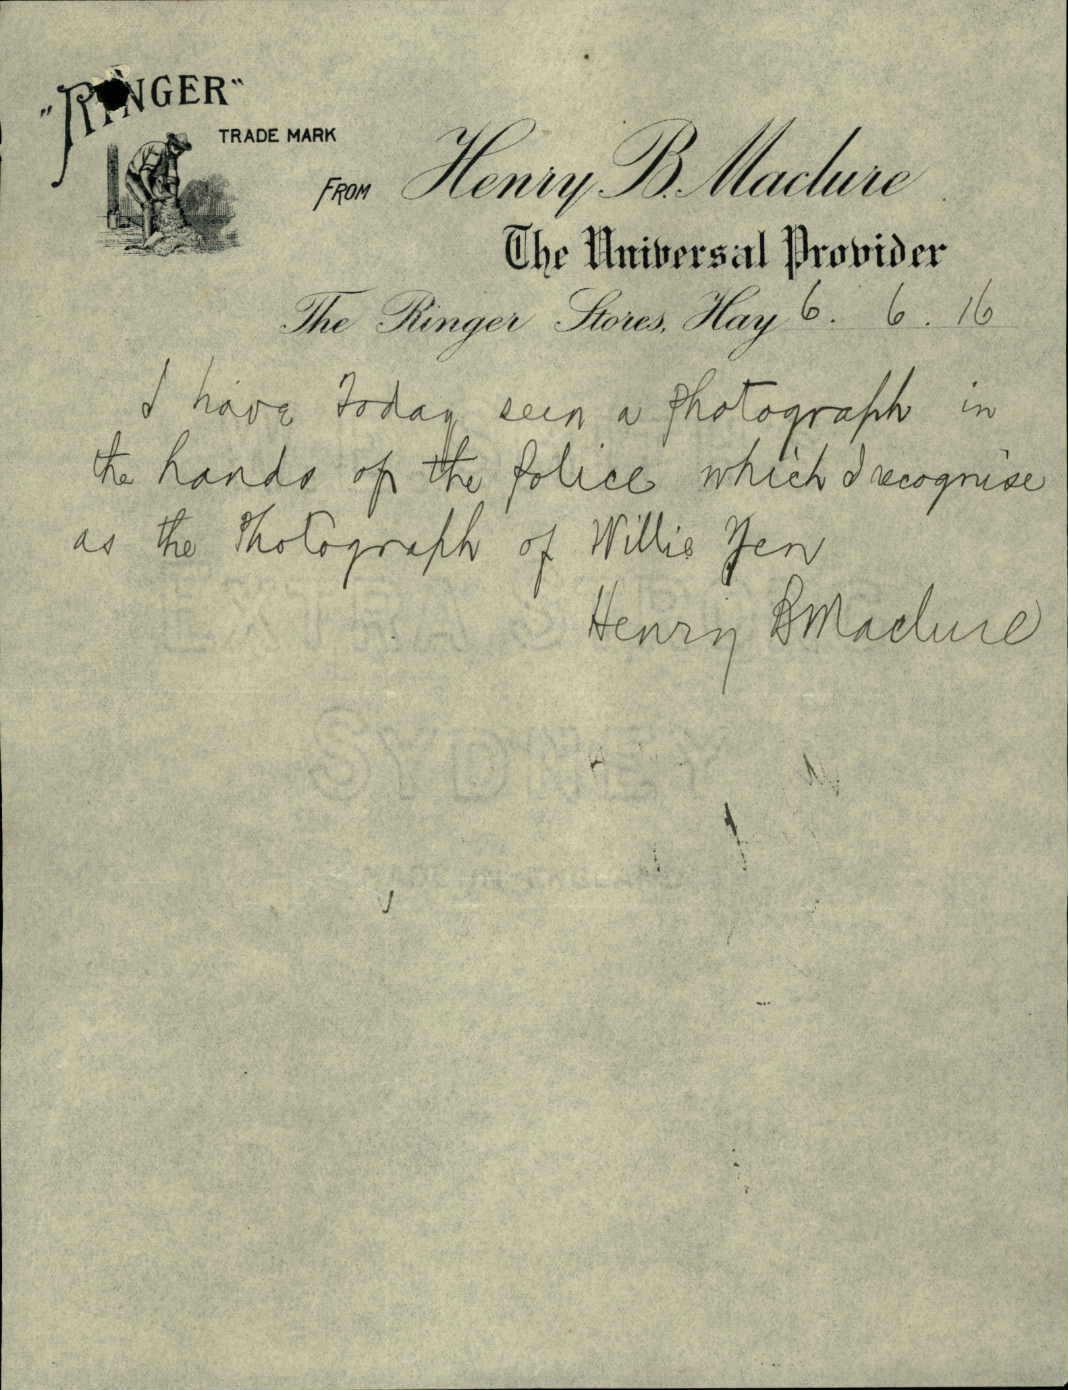 "RINGER"
TRADE MARK
FROM Henry B. Maclure
The Universal Provider
The Ringer Stores, Hay 6. 6. 16
I have today seen a photograph in
the hands of the police which I recognise
as the Photograph of Willie Yen
Henry B Maclure
EXTRA STRONG
SYDNEY
MADE IN ENGLAND